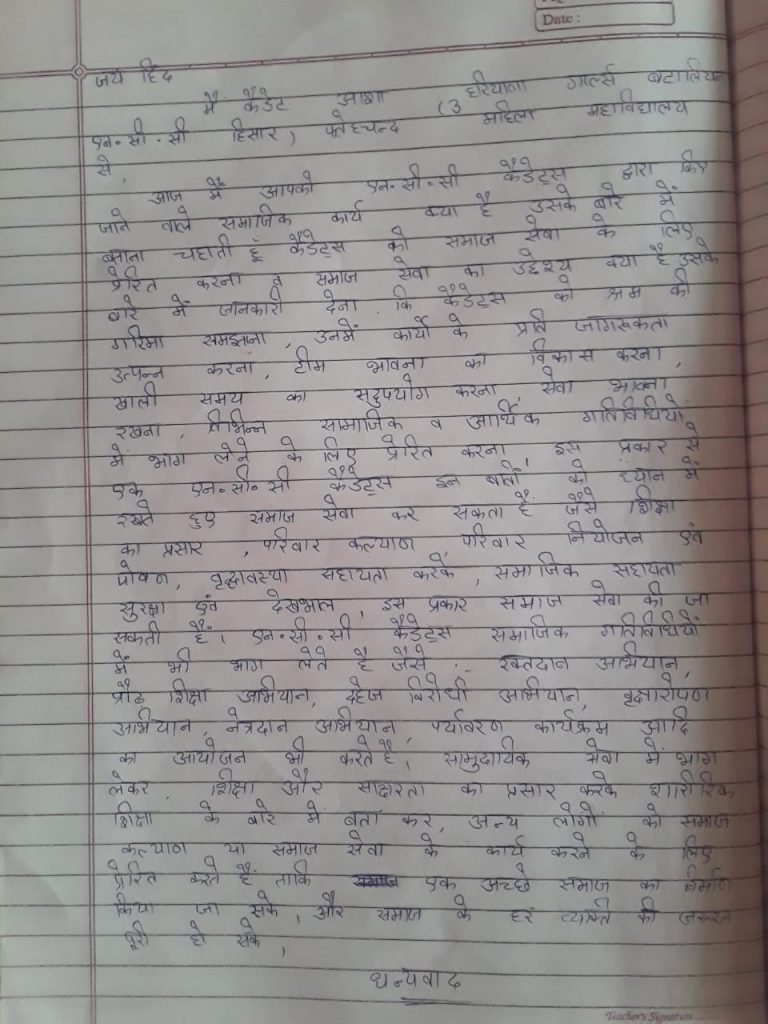 Date :
जय हिंद
मैं कैडेट आशा (3 हरियाणा गर्ल्स बटालियन
एन.सी.सी हिसार) फतेहचन्द महिला महाविद्यालय
से.
आज मैं आपको एन.सी.सी कैडेट्स द्वारा किए
जाने वाले समाजिक कार्य क्या है उसके बारे में
बताना चहाती हूं कैडेट्स को समाज सेवा के लिए
प्रेरित करना व समाज सेवा का उद्देश्य क्या है उसके
बारे में जानकारी देना कि कैडेट्स को श्रम की
गरिमा समझाना, उनमें कार्यो के प्रति जागरूकता
उत्पन्न करना, टीम भावना का विकास करना,
खाली समय का सदुपयोग करना, सेवा भावना
रखना, विभिन्न सामाजिक व आर्थिक गतिविधियों
में भाग लेने के लिए प्रेरित करना, इस प्रकार से
एक एन.सी.सी कैडेट्स इन बातों को ध्यान में
रखते हुए समाज सेवा कर सकता है जैसे शिक्षा
का प्रसार, परिवार कल्याण, परिवार नियोजन एवं
पोषण, वृद्धावस्था सहायता करके, समाजिक सहायता
सुरक्षा एवं देखभाल, इस प्रकार समाज सेवा की जा
सकती है, एन.सी.सी कैडेट्स समाजिक गतिविधियों
में भी भाग लेते है जैसे :- रक्तदान अभियान,
प्रौढ शिक्षा अभियान, दहेज विरोधी अभियान, वृक्षारोपण
अभियान, नेत्रदान अभियान, पर्यावरण कार्यक्रम आदि
का आयोजन भी करते है, सामुदायिक सेवा में भाग
लेकर, शिक्षा और साक्षरता का प्रसार करके शारीरिक
शिक्षा के बारे में बता कर, अन्य लोगों को समाज
कल्याण या समाज सेवा के कार्य करने के लिए
प्रेरित करते है ताकि एक अच्छे समाज का निर्माण
किया जा सके, और समाज के हर व्यक्ति की जरूरत
पूरी हो सके,
धन्यवाद
Teacher's Signature